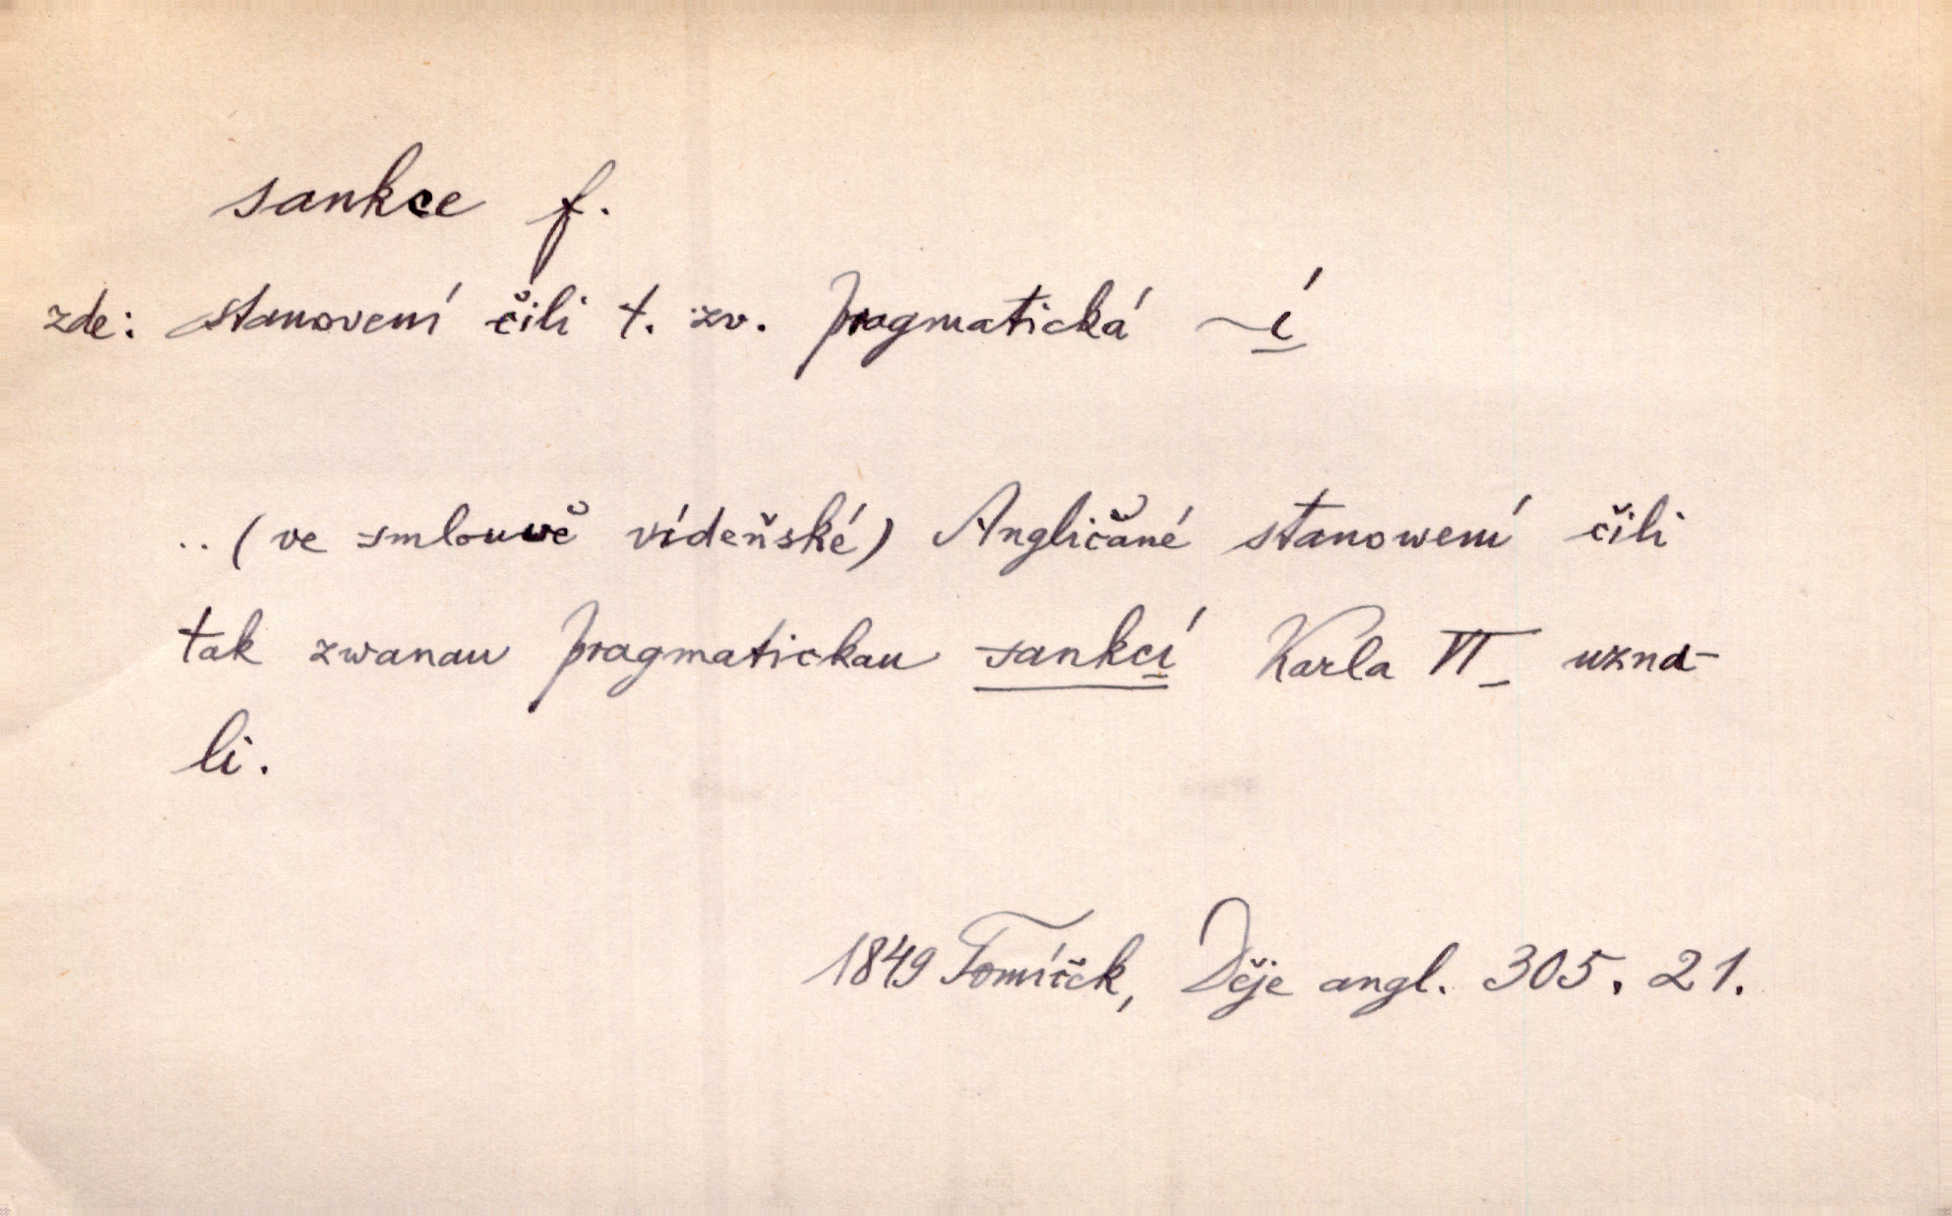 sankce f.
zde: stanovení čili t. zv. pragmatická ~í
.. (ve smlouwě vídeňské) Angličané stanowení čili
tak zwanau pragmatickau sankcí Karla VI uzna-
li.
1849 Tomíček, Děje angl. 305. 21.